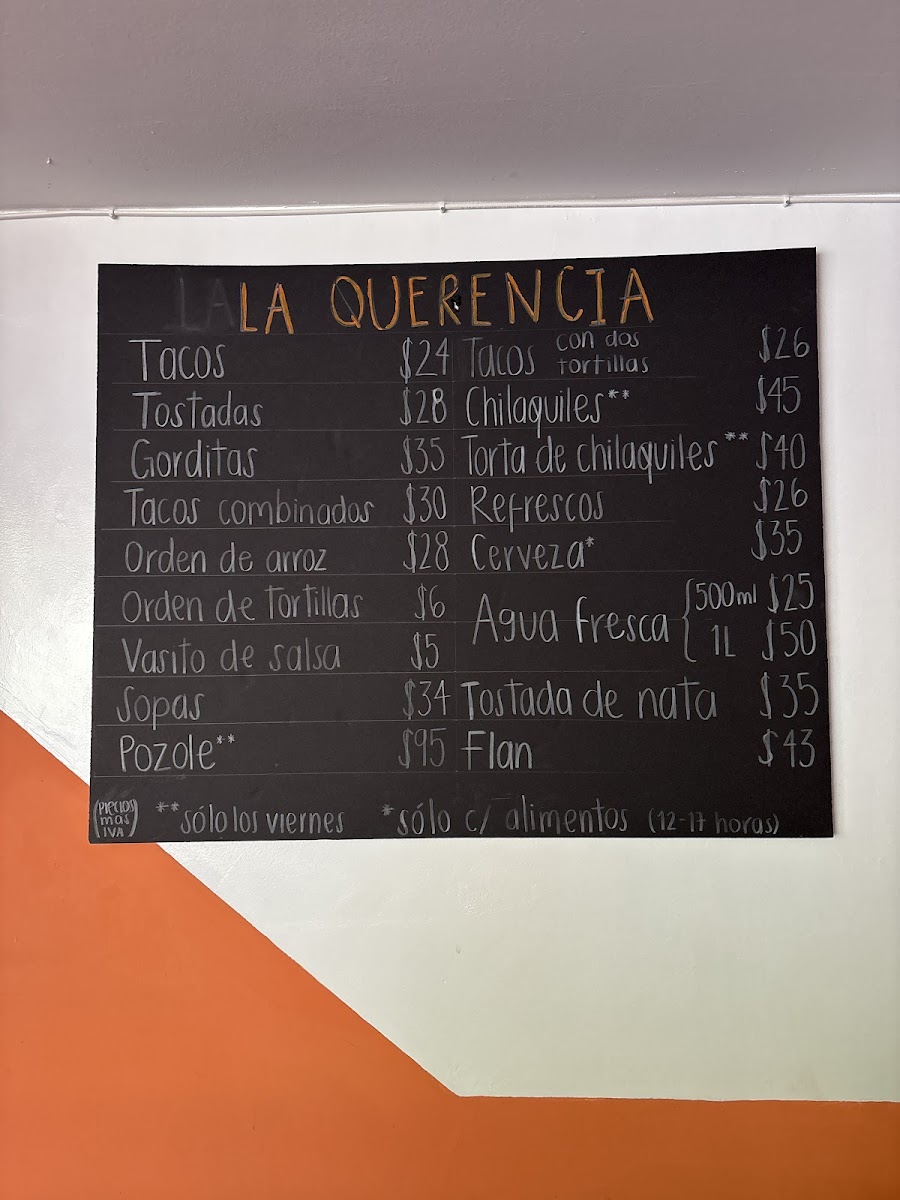 LA QUERENCIA
Tacos $24
Tostadas $28
Gorditas $35
Tacos combinados $30
Orden de arroz $28
Orden de Tortillas $6
Vasito de salsa $5
Sopas $34
Pozole** $95
Tacos con dos tortillas $26
Chilaquiles** $45
Torta de chilaquiles** $40
Refrescos $26
Cerveza* $35
Agua fresca { 500ml $25
1L $50
Tostada de nata $35
Flan $43
(Precios
mas
IVA)
**sólo los viernes *sólo c/ alimentos (12-17 horas)